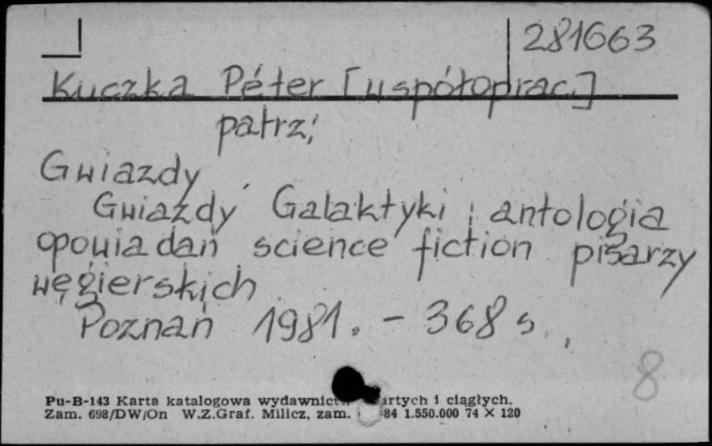 281663
Kuczka Péter [współoprac.]
patrz;
Gwiazdy
Gwiazdy Galaktyki; antologia
opowiadań science fiction pisarzy
węgierskich
Poznań 1981. - 368 s.
8
Pu-B-143 Karta katalogowa wydawnict artych i ciągłych.
Zam. 698/DW/On W.Z.Graf. Milicz, zam. 84 1.550.000 74 X 120